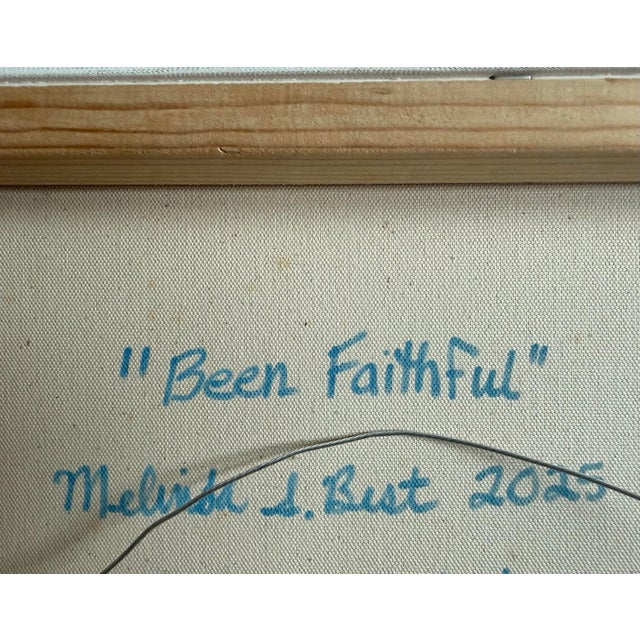 "Been Faithful"
Melinda S. Best 2025